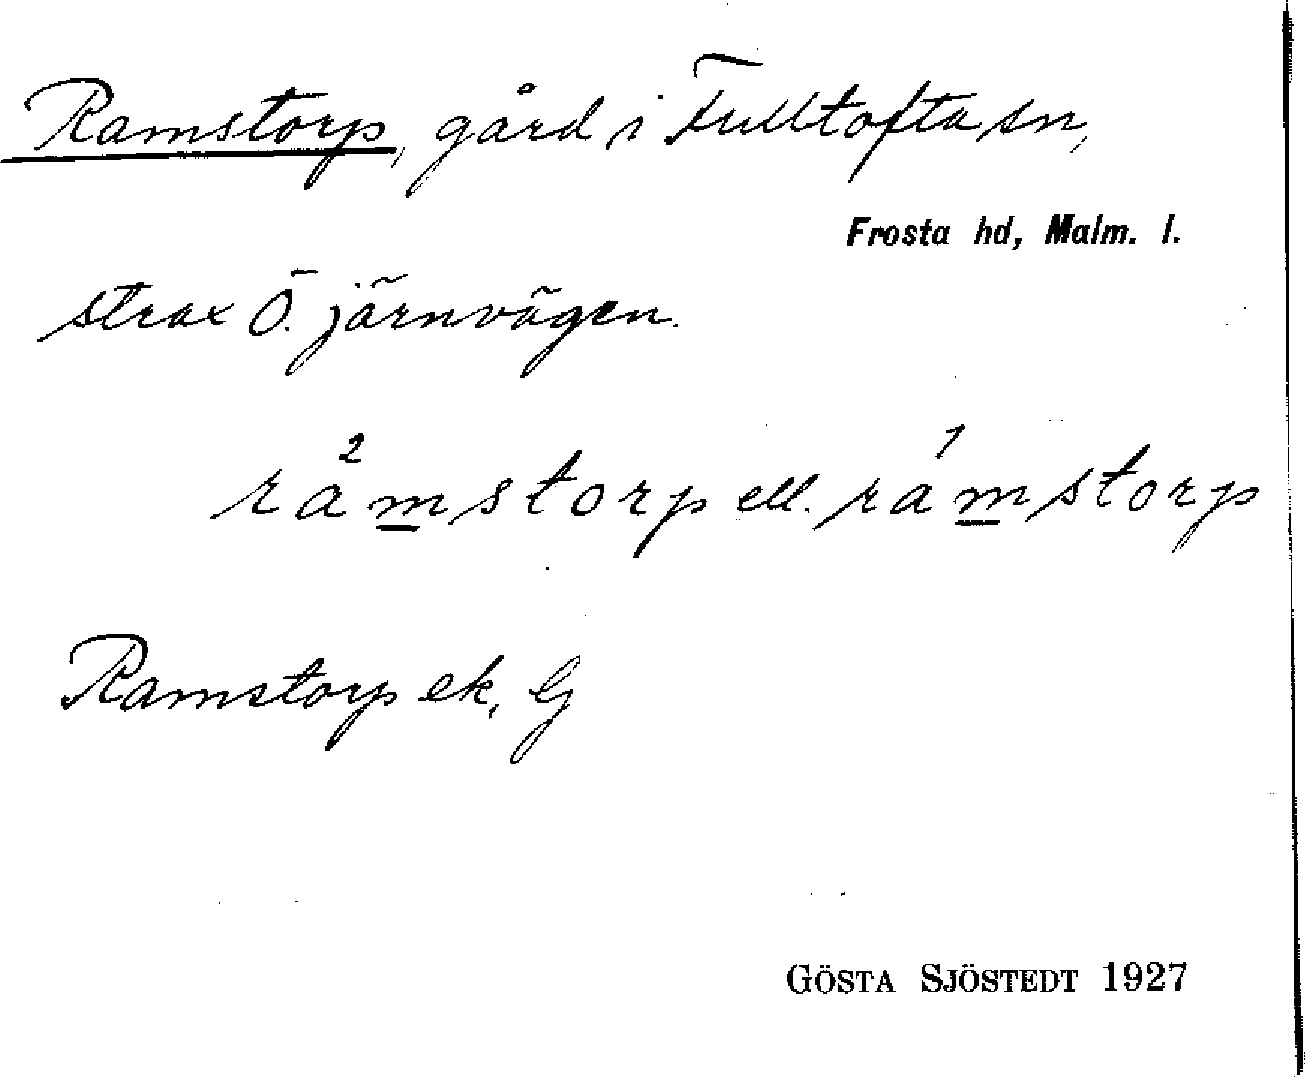 Ramstorp, gård i Fulltofta sn,
Frosta hd, Malm. l.
strax Ö. järnvägen.
ra²mstorp ell. ra¹mstorp
Ramstorp ek, G
GÖSTA SJÖSTEDT 1927